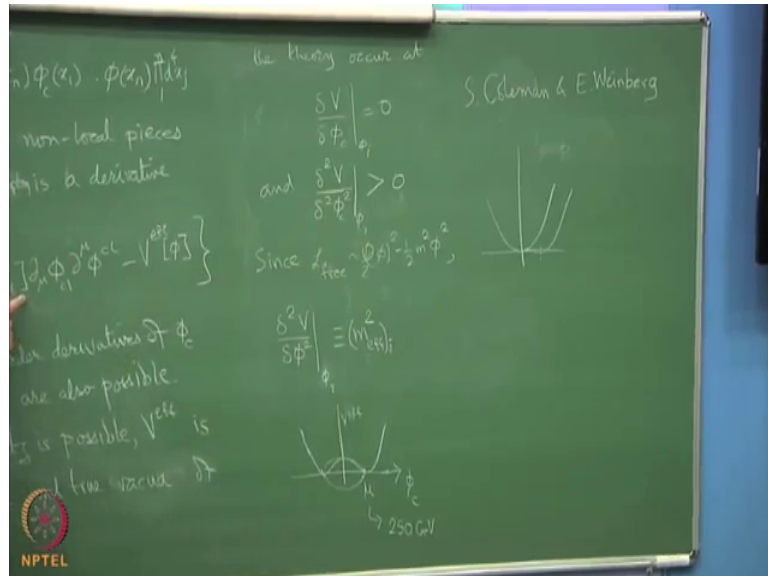 n) φ_c(x_1) . φ(x_n) ∏_1^n d^4x_j
non-local pieces
is a derivative
]∂_μ φ_cl ∂^μ φ^cl − V^eff[φ] }
derivatives of φ_c
are also possible.
is possible, V^eff is
true vacua of
the theory occur at
δV/δφ_c |_φ_i = 0
and δ²V/δ²φ_c² |_φ_i > 0
Since L_free ~ (∂φ)² − ½m²φ²,
δ²V/δφ² |_φ_i ≡ (m²_eff)_i
V^eff
φ_c
μ
↳ 250 GeV
S. Coleman & E. Weinberg
NPTEL